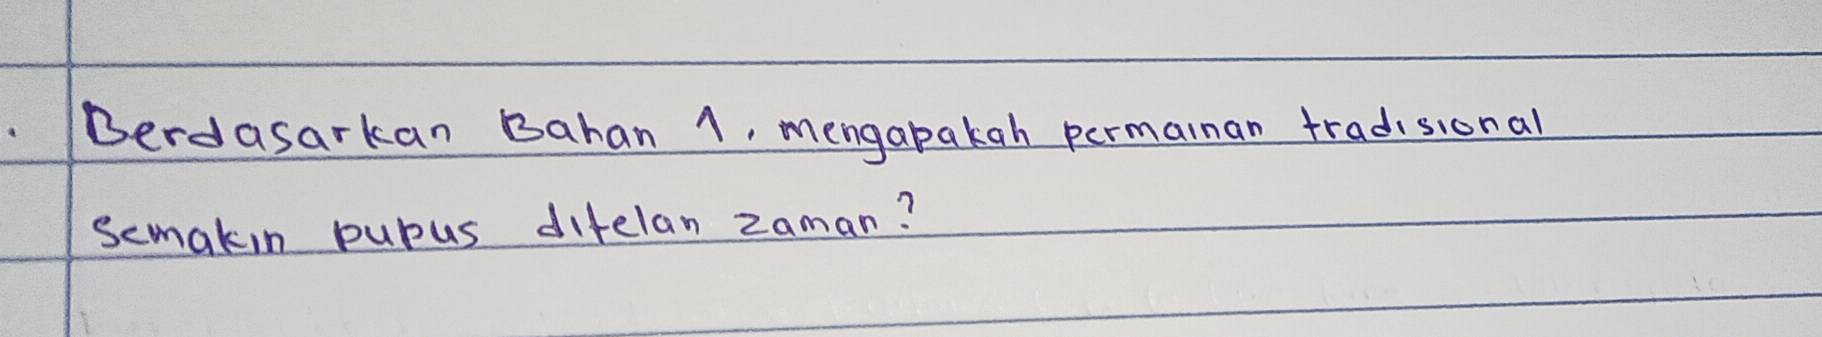 Berdasarkan Bahan 1, mengapakah permainan tradisional
semakin pupus ditelan zaman?